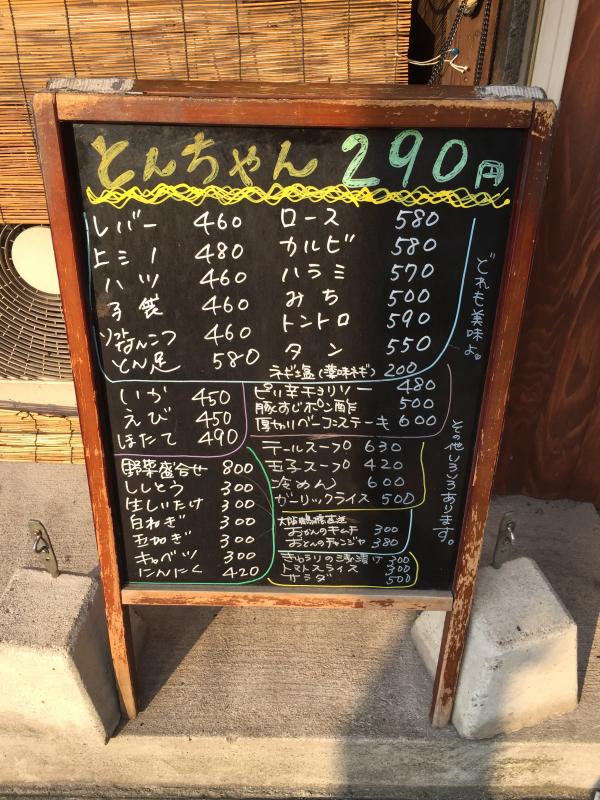 とんちゃん 290円
レバー 460
上ミノ 480
ハツ 460
子袋 460
ソフトなんこつ 460
とん足 580
ロース 580
カルビ 580
ハラミ 570
みち 500
トントロ 590
タン 550
ネギ塩(薬味ネギ) 200
どれも美味よ。
いか 450
えび 450
ほたて 490
ピリ辛チョリソー 480
豚すじポン酢 500
厚切りベーコンステーキ 600
野菜盛合せ 800
ししとう 300
生しいたけ 300
白ねぎ 300
玉ねぎ 300
キャベツ 300
にんにく 420
テールスープ 630
玉子スープ 420
冷めん 600
ガーリックライス 500
大阪鶴橋直送
おかんのキムチ 300
おとんのチャンジャ 380
きゅうりの浅漬け 300
トマトスライス 300
サラダ 500
その他いろいろあります。